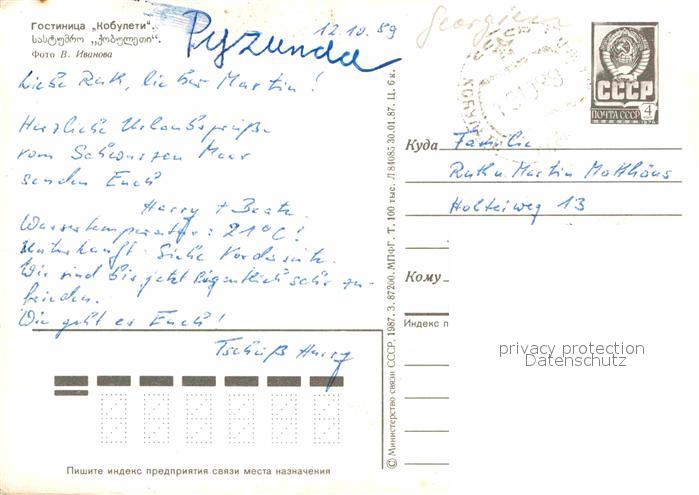 Гостиница „Кобулети".
სასტუმრო „ქობულეთი".
Фото В. Иванова
12.10.89
Pyzunda
Georgien
Liebe Ruth, lieber Martin!
Herzliche Urlaubsgrüße
vom Schwarzen Meer
senden Euch
Harry + Beate
Wassertemperatur: 21°C!
Unterkunft siehe Vorderseite.
Wir sind bis jetzt eigentlich sehr zu-
frieden.
Wie geht es Euch!
Tschüß Harry
Пишите индекс предприятия связи места назначения
© Министерство связи СССР, 1987. З. 87200. МПФГ. Т. 100 тыс. Л 84085 30.01.87. Ц. 6 к.
СССР
ПОЧТА СССР 4
Куда Familie
Ruth u. Martin Matthäus
Holteiweg 13
Кому
Индекс п
privacy protection
Datenschutz